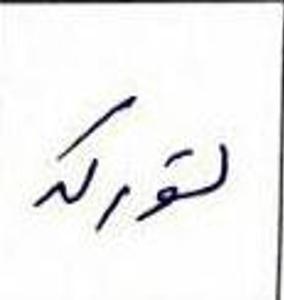 لتورکہ